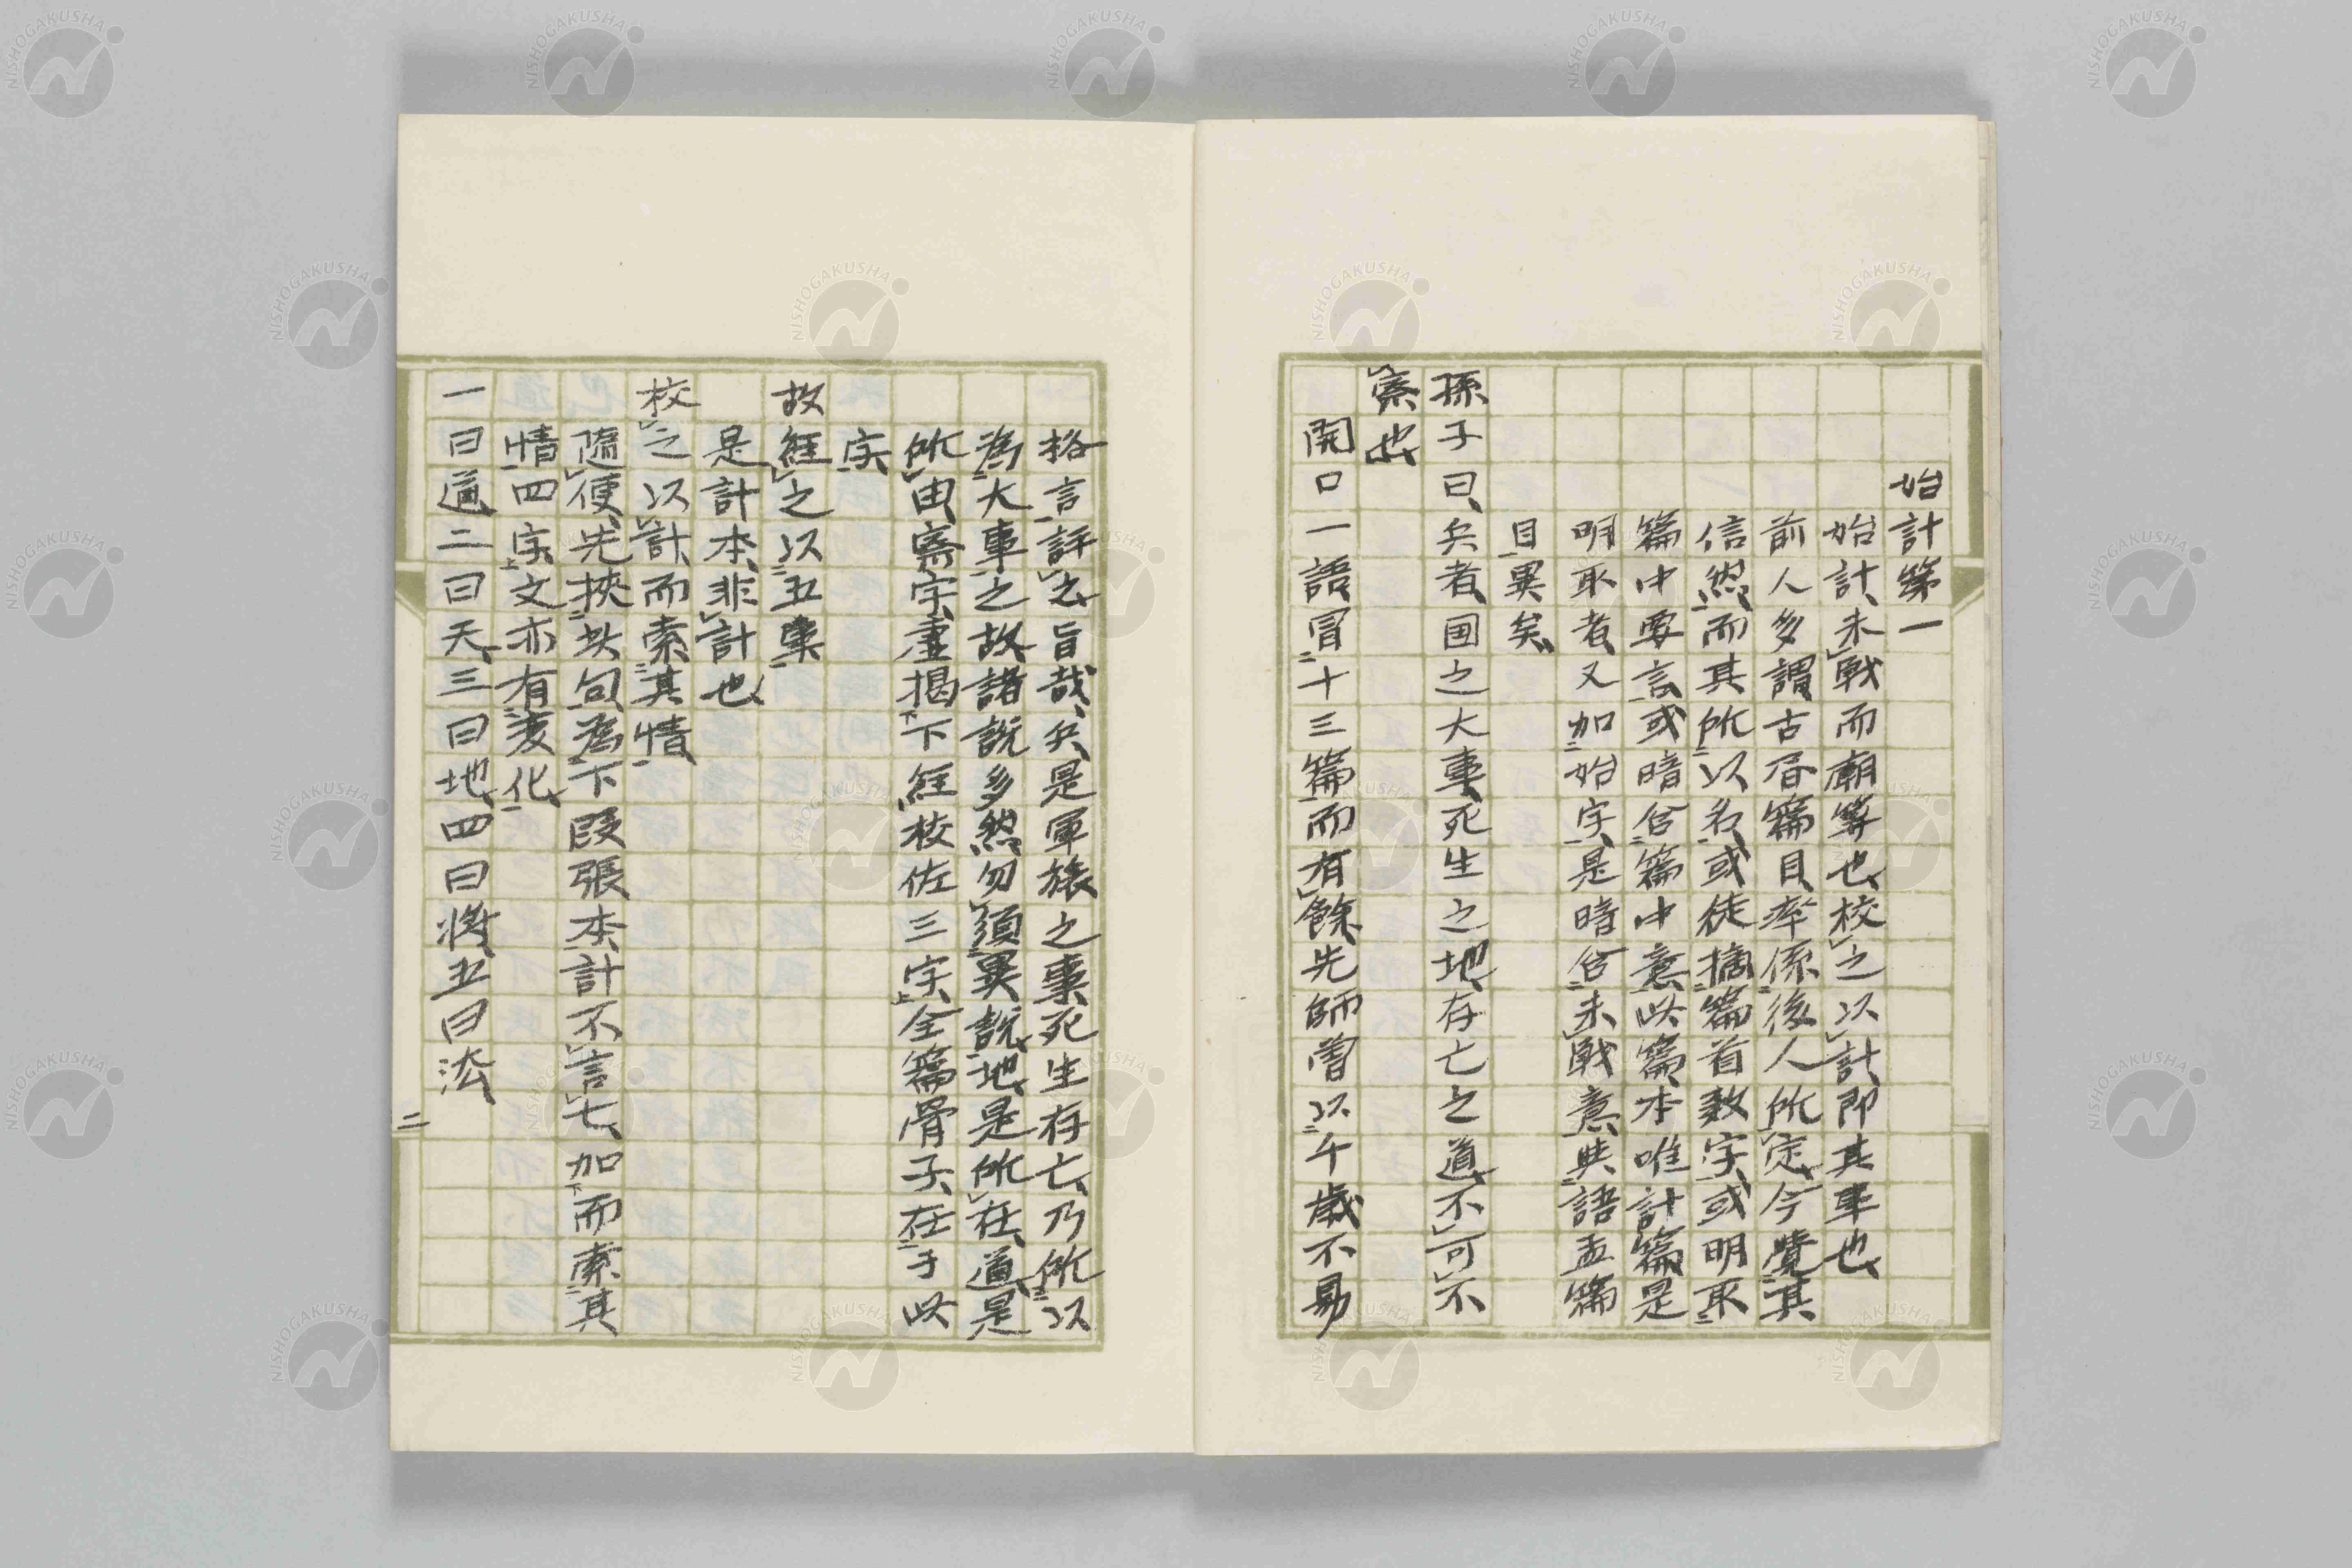 始計第一
始計、未戰而廟筭也、校之以計、即其事也、
前人多謂古昏篇目、率係後人所定、今覺其
信然、而其所以名、或徒摘篇首數字、或明取
篇中要言、或暗合篇中意、此篇本唯計篇、是
明取者、又加始字、是暗合未戰意、與語孟篇
目異矣、
孫子曰、兵者、国之大事、死生之地、存亡之道、不可不
察也、
開口一語、冒十三篇而有餘、先師嘗以千歲不易
格言評之、旨哉、兵是軍旅之事、死生存亡、乃所以
為大事之故、諸說多然、勿須異說、地是所在、道是
所由、察字虛揭下經校佐三字、全篇骨子、在于此
字
故經之以五事
是計本、非計也、
校之以計、而索其情、
隨便先挾此句、為下段張本、計不言七、加而索其
情四字、文亦有変化、
一曰道、二曰天、三曰地、四曰將、五曰法、
二
NISHOGAKUSHA